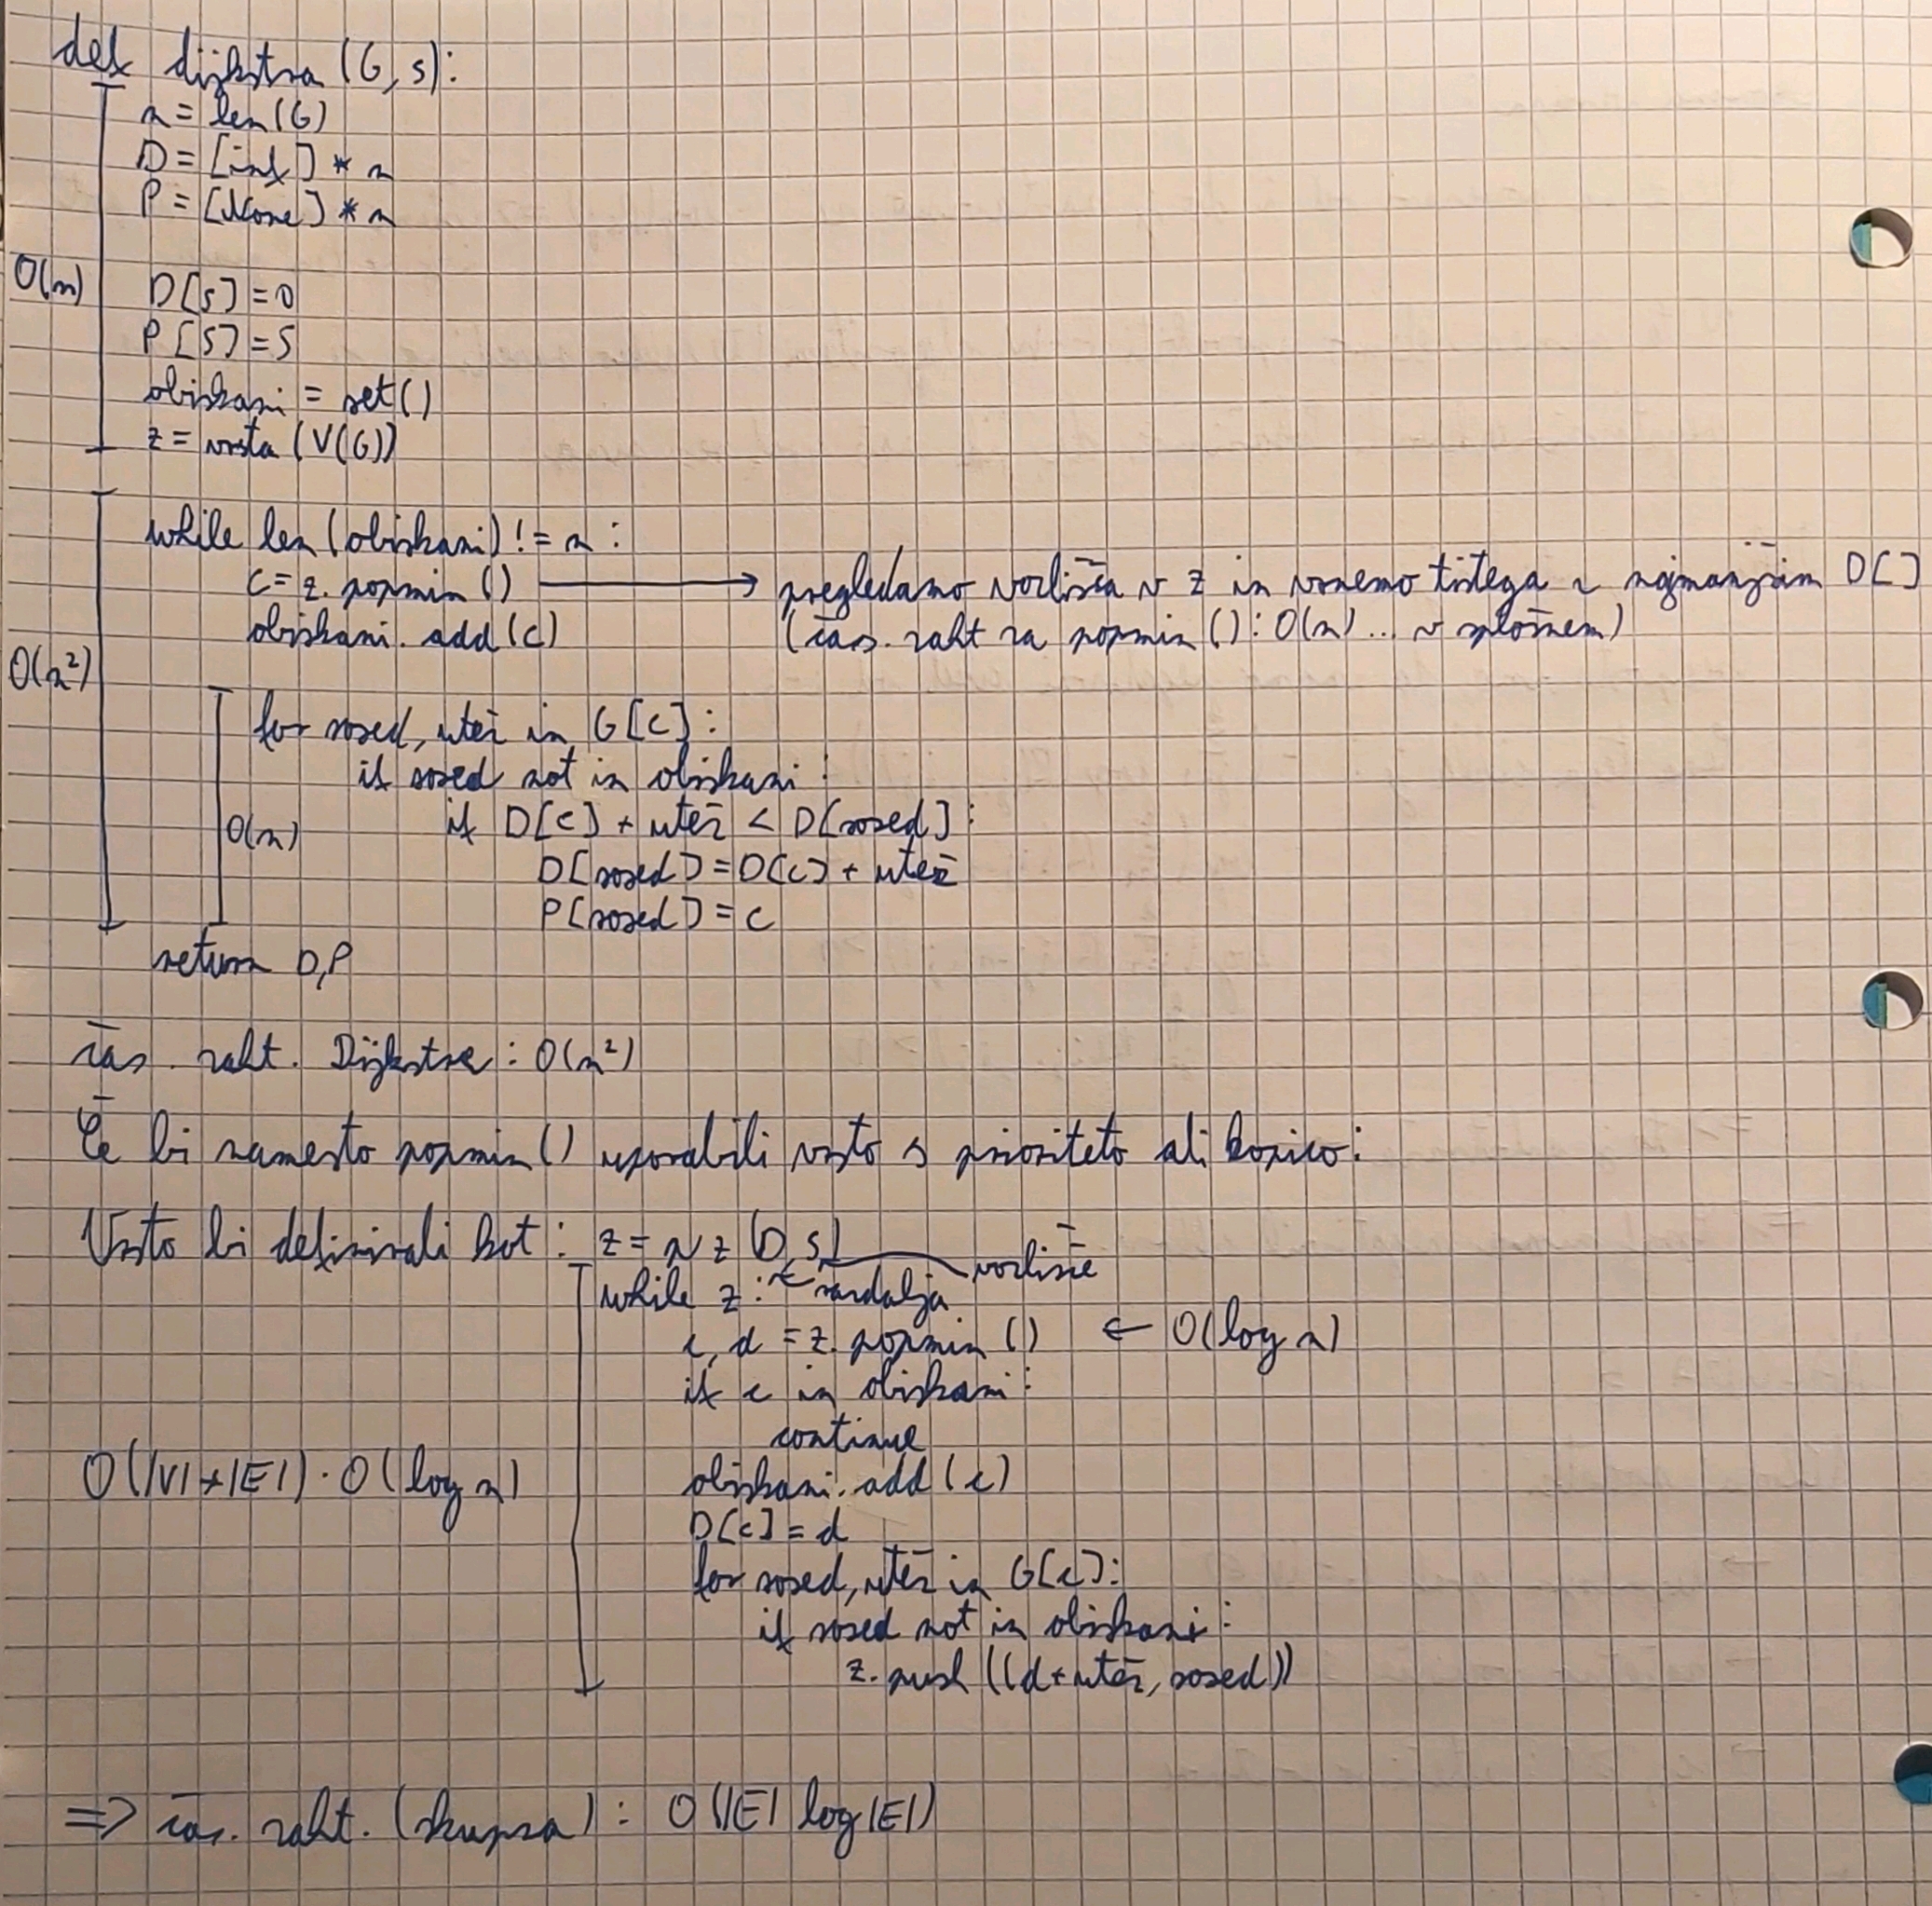 def dijkstra (G, s):
n = len(G)
D = [inf] * n
P = [None] * n
O(n)
D[s] = 0
P[s] = s
obiskani = set()
z = vrsta (V(G))
while len (obiskani) != n :
c = z. popmin () → pregledamo vozlišča v z in vzamemo tistega z najmanjšim D[]
obiskani. add (c) (čas. zaht za popmin (): O(n) ... v splošnem)
O(n²)
for sosed, utež in G[c]:
if sosed not in obiskani :
O(n) if D[c] + utež < D[sosed]:
D[sosed] = D[c] + utež
P[sosed] = c
return D,P
čas. zaht. Dijkstre: O(n²)
Če bi namesto popmin () uporabili vrsto s prioriteto ali kopico:
Vrsto bi definirali kot : z = (D, s) vozlišče
while z : ← razdalja
c, d = z. popmin () ← O(log n)
if c in obiskani:
continue
O(|V|+|E|) · O(log n) obiskani. add (c)
D[c] = d
for sosed, utež in G[c]:
if sosed not in obiskani :
z. push ((d + utež, sosed))
=> čas. zaht. (skupna) : O(|E| log |E|)